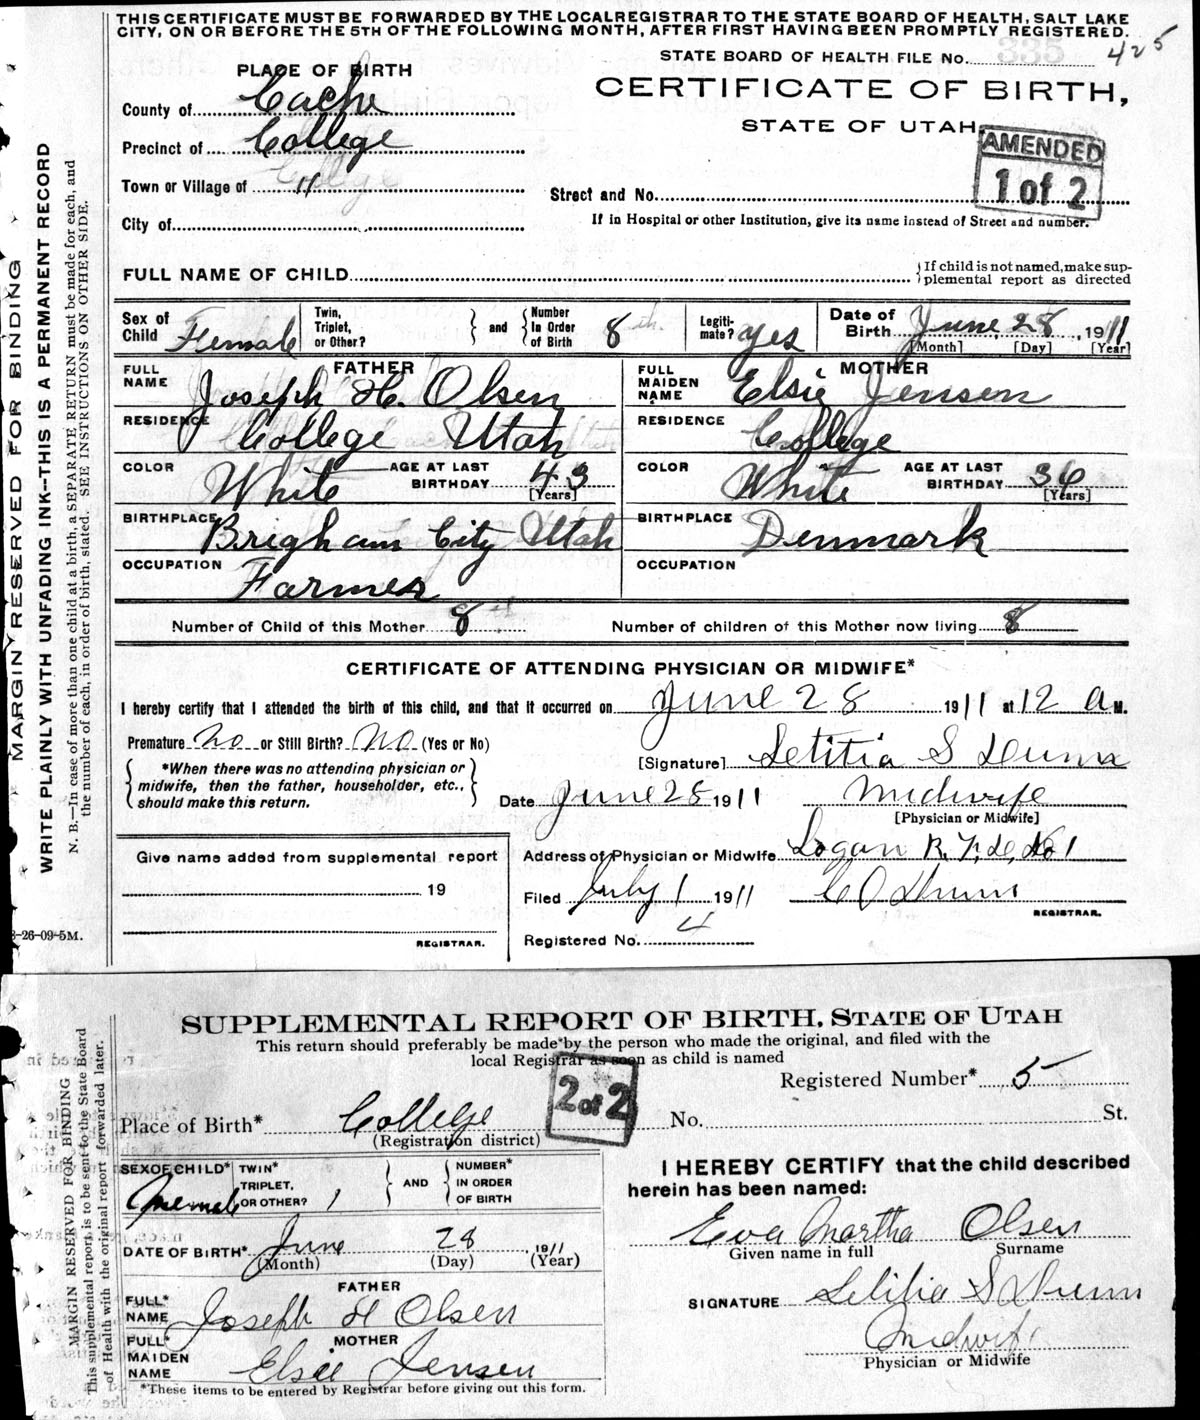 THIS CERTIFICATE MUST BE FORWARDED BY THE LOCAL REGISTRAR TO THE STATE BOARD OF HEALTH, SALT LAKE
CITY, ON OR BEFORE THE 5TH OF THE FOLLOWING MONTH, AFTER FIRST HAVING BEEN PROMPTLY REGISTERED.
STATE BOARD OF HEALTH FILE No. 335 425
PLACE OF BIRTH
CERTIFICATE OF BIRTH,
STATE OF UTAH.
County of Cache
Precinct of College
Town or Village of "
City of
AMENDED
1 of 2
Street and No.
If in Hospital or other Institution, give its name instead of Street and number.
FULL NAME OF CHILD
If child is not named, make sup-
plemental report as directed
Sex of Child Female
Twin, Triplet, or Other?
and
Number In Order of Birth 8th
Legiti-mate? yes
Date of Birth June 28, 1911
[Month] [Day] [Year]
FATHER
FULL NAME Joseph H. Olsen
MOTHER
FULL MAIDEN NAME Elsie Jensen
RESIDENCE College Utah
RESIDENCE College
COLOR White AGE AT LAST BIRTHDAY 43 [Years]
COLOR White AGE AT LAST BIRTHDAY 36 [Years]
BIRTHPLACE Brigham City Utah
BIRTHPLACE Denmark
OCCUPATION Farmer
OCCUPATION
Number of Child of this Mother 8th
Number of children of this Mother now living 8
CERTIFICATE OF ATTENDING PHYSICIAN OR MIDWIFE*
I hereby certify that I attended the birth of this child, and that it occurred on June 28 1911 at 12 a M.
Premature No or Still Birth? No (Yes or No)
*When there was no attending physician or
midwife, then the father, householder, etc.,
should make this return.
[Signature] Letitia S Dunn
Date June 28 1911 Midwife
[Physician or Midwife]
Give name added from supplemental report
19
REGISTRAR.
Address of Physician or Midwife Logan R. F. D. No 1
Filed July 1 1911 C O Dunn
REGISTRAR.
Registered No. 4
MARGIN RESERVED FOR BINDING
WRITE PLAINLY WITH UNFADING INK—THIS IS A PERMANENT RECORD
N. B.—In case of more than one child at a birth, a SEPARATE RETURN must be made for each, and
the number of each, in order of birth, stated. SEE INSTRUCTIONS ON OTHER SIDE.
-26-09-5M.
SUPPLEMENTAL REPORT OF BIRTH, STATE OF UTAH
This return should preferably be made by the person who made the original, and filed with the
local Registrar as soon as child is named
2 of 2
Registered Number* 5
Place of Birth* College
(Registration district)
No. St.
SEX OF CHILD* Female
TWIN* TRIPLET, OR OTHER? 1
AND
NUMBER* IN ORDER OF BIRTH
DATE OF BIRTH* June 28, 1911
(Month) (Day) (Year)
FATHER
FULL* NAME Joseph H Olsen
MOTHER
FULL* MAIDEN NAME Elsie Jensen
*These items to be entered by Registrar before giving out this form.
I HEREBY CERTIFY that the child described
herein has been named:
Eva Martha Olsen
Given name in full Surname
SIGNATURE Letitia S Dunn
Midwife
Physician or Midwife
MARGIN RESERVED FOR BINDING
This supplemental report is to be sent to the State Board
of Health with the original report forwarded later.